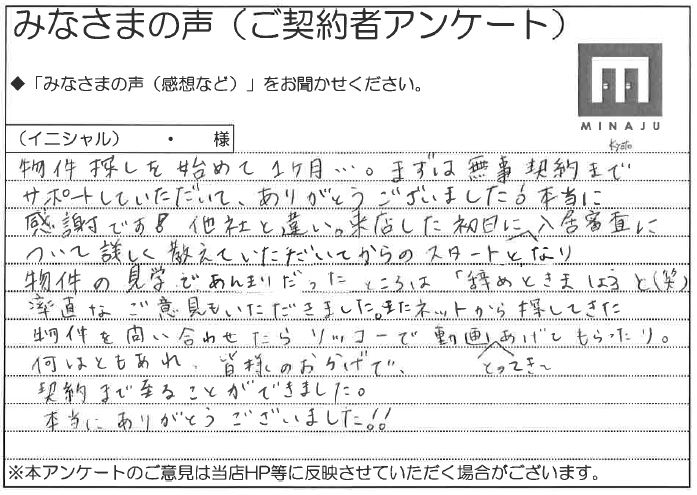 みなさまの声（ご契約者アンケート）
◆「みなさまの声（感想など）」をお聞かせください。
MINAJU
Kyoto
（イニシャル） ・ 様
物件探しを始めて1ヶ月…。まずは無事契約まで
サポートしていただいて、ありがとうございました!本当に
感謝です!他社と違い。来店した初日に、入居審査に
ついて詳しく教えていただいてからのスタートとなり
物件の見学であんまりだったところは「辞めときましょう」と(笑)
率直なご意見もいただきました。またネットから探してきた
物件を問い合わせたらソッコーで動画とってきてあげてもらったり。
何はともあれ、皆様のおかげで、
契約まで至ることができました。
本当にありがとうございました!!
※本アンケートのご意見は当店HP等に反映させていただく場合がございます。